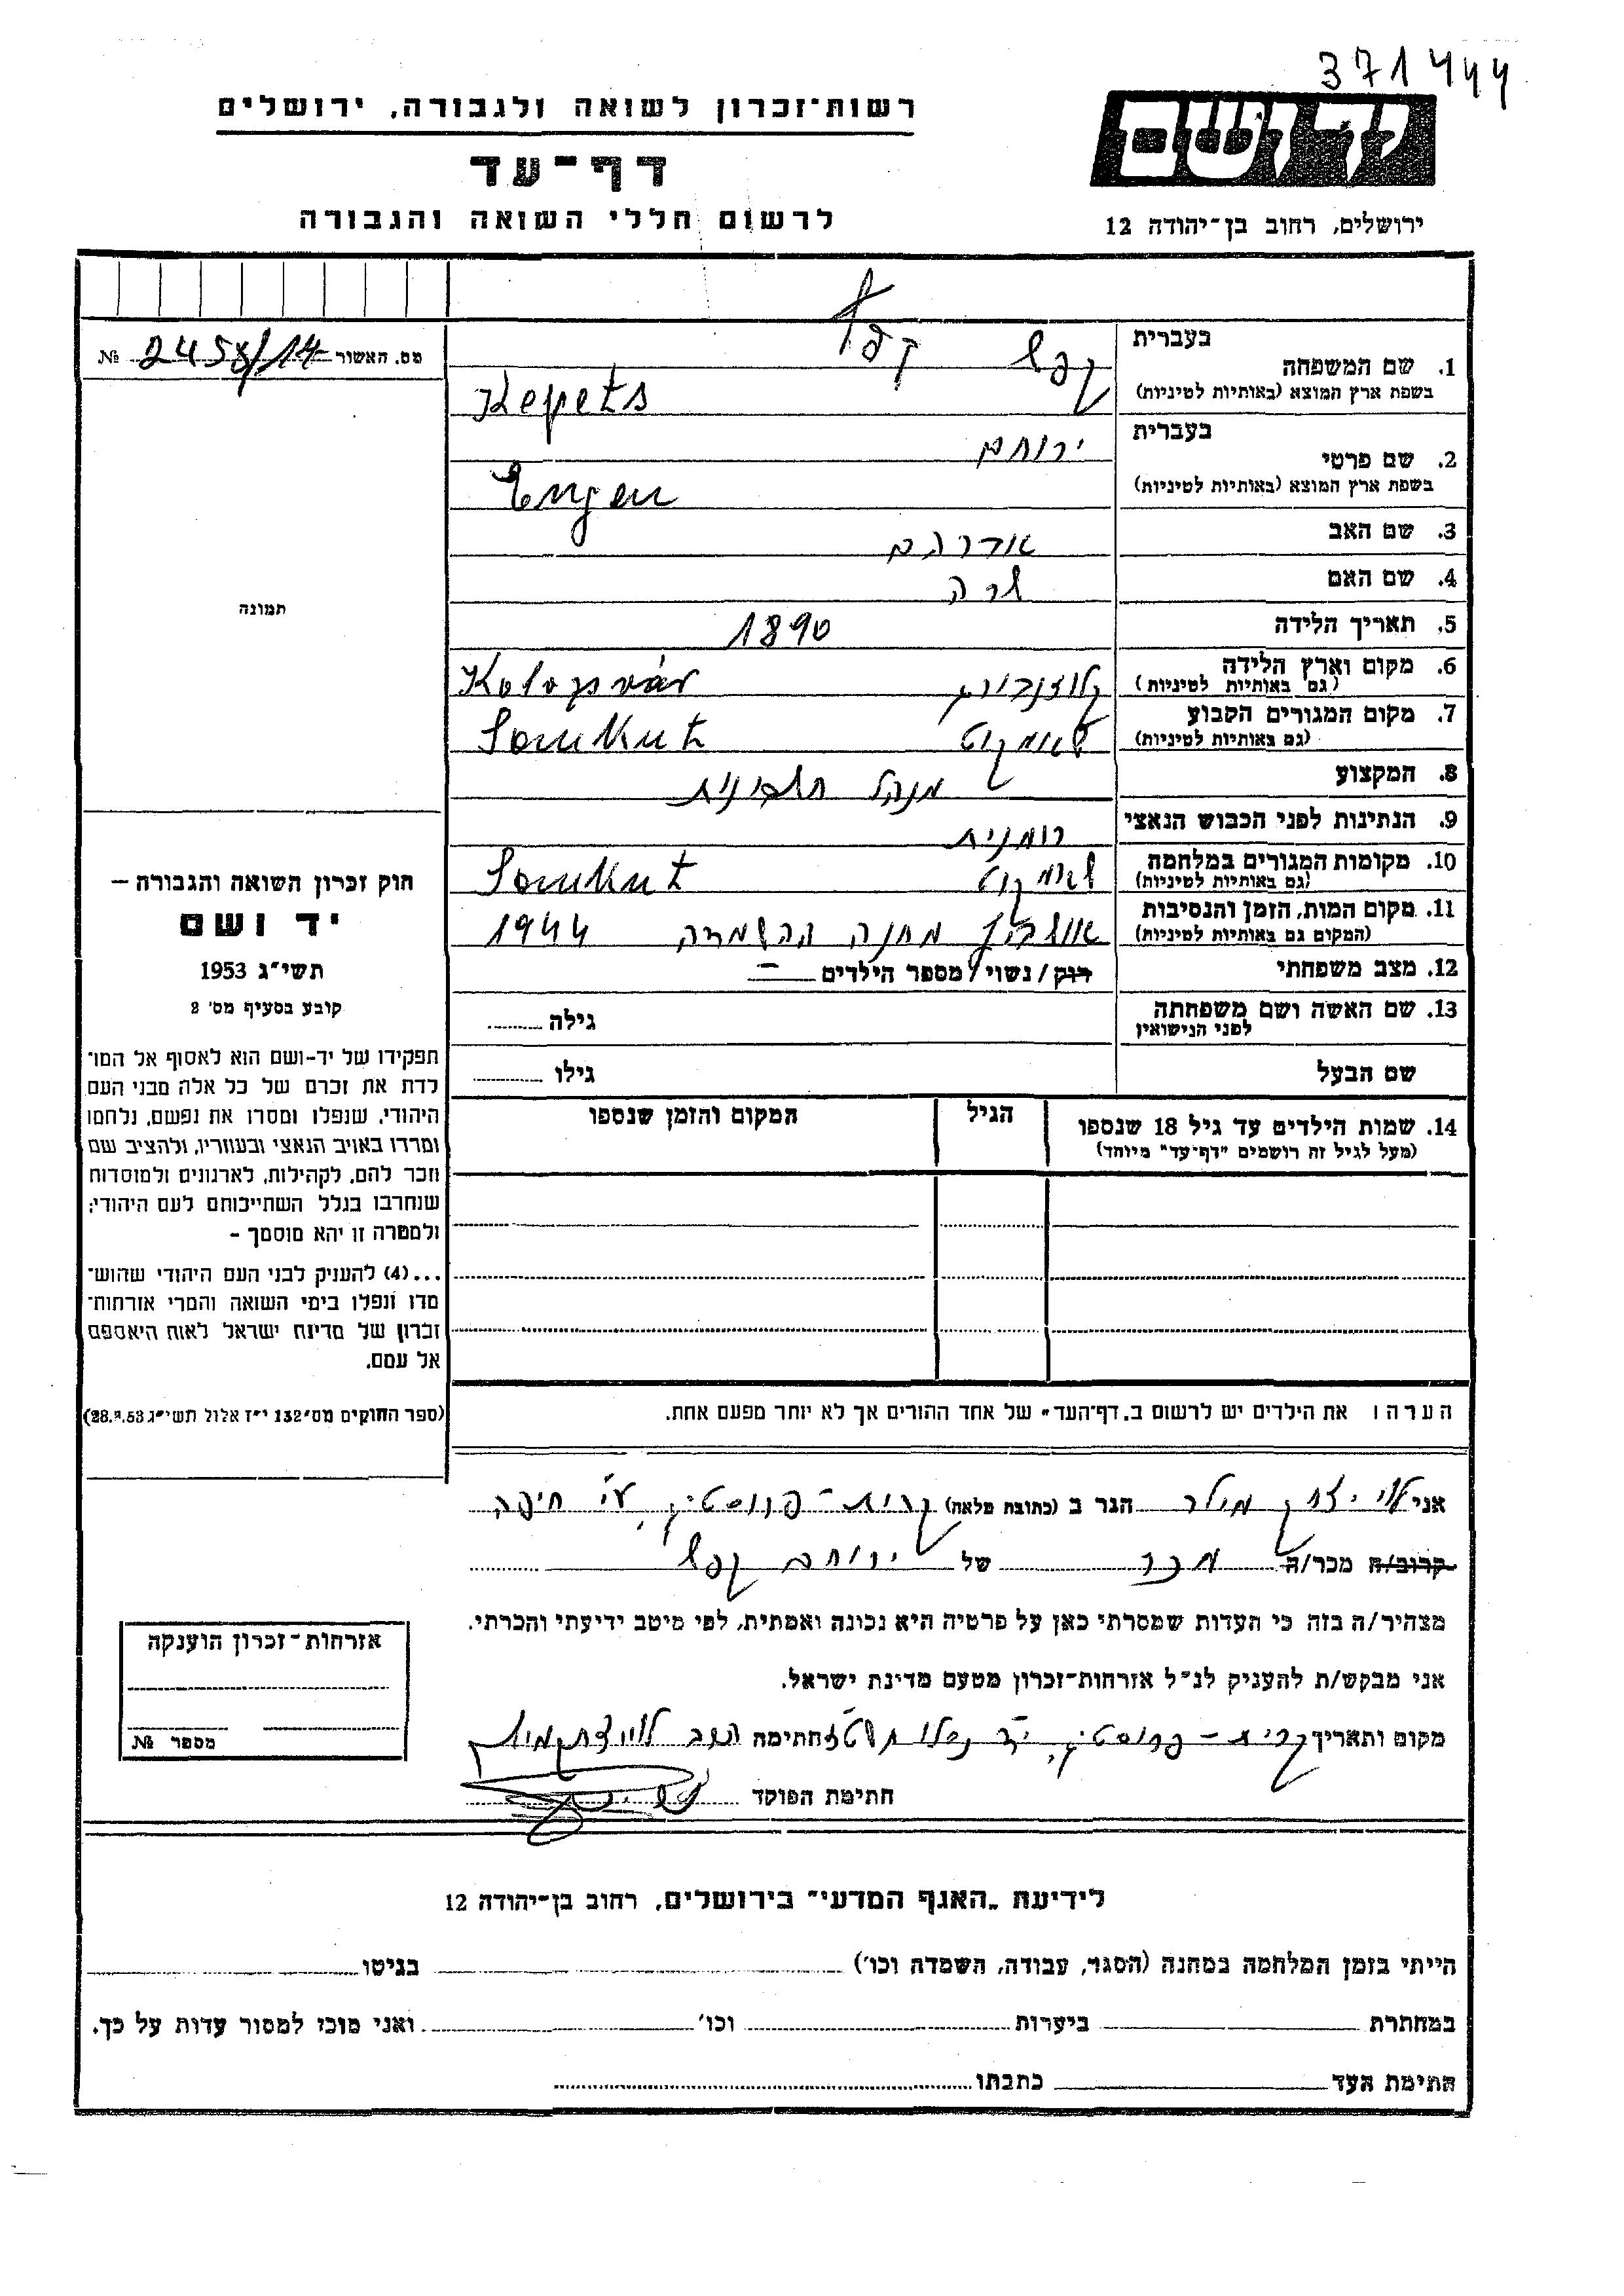 371444
רשות־זכרון לשואה ולגבורה, ירושלים
דף־עד
לרשום חללי השואה והגבורה
יד ושם
ירושלים, רחוב בן־יהודה 12
מס. האשור 2458/14 №
תמונה
חוק זכרון השואה והגבורה —
יד ושם
תשי״ג 1953
קובע בסעיף מס' 2
תפקידו של יד-ושם הוא לאסוף אל המו־
לדת את זכרם של כל אלה מבני העם
היהודי, שנפלו ומסרו את נפשם, נלחמו
ומרדו באויב הנאצי ובעוזריו, ולהציב שם
וזכר להם, לקהילות, לארגונים ולמוסדות
שנחרבו בגלל השתייכותם לעם היהודי;
ולמטרה זו יהא מוסמך –
...(4) להעניק לבני העם היהודי שהוש־
מדו ונפלו בימי השואה והמרי אזרחות־
זכרון של מדינת ישראל לאות היאספם
אל עמם.
(ספר החוקים מס' 132 י״ז אלול תשי״ג 28.8.53)
1. שם המשפחה
בעברית קפש
בשפת ארץ המוצא (באותיות לטיניות) Kepets
2. שם פרטי
בעברית ירוחם
בשפת ארץ המוצא (באותיות לטיניות) Engen
3. שם האב אברהם
4. שם האם שרה
5. תאריך הלידה 1890
6. מקום וארץ הלידה קלוזנבורג Kolozsvár
(גם באותיות לטיניות)
7. מקום המגורים הקבוע שאמקוט Somkut
(גם באותיות לטיניות)
8. המקצוע מנהל חשבונות
9. הנתינות לפני הכבוש הנאצי רומנית
10. מקומות המגורים במלחמה שאמקוט Somkut
(גם באותיות לטיניות)
11. מקום המות, הזמן והנסיבות אושביץ מחנה ההשמדה 1944
(המקום גם באותיות לטיניות)
12. מצב משפחתי רוק / נשוי / מספר הילדים –
13. שם האשה ושם משפחתה גילה
לפני הנישואין
שם הבעל גילו
14. שמות הילדים עד גיל 18 שנספו הגיל המקום והזמן שנספו
(מעל לגיל זה רושמים "דף־עד" מיוחד)
הערה: את הילדים יש לרשום ב„דף־העד" של אחד ההורים אך לא יותר מפעם אחת.
אני לוי יצחק מילר הגר ב (כתובת מלאה) קרית-פרוסטיג, ע״י חיפה
קרוב/ה מכר/ה מכר של ירוחם קפש
מצהיר/ה בזה כי העדות שמסרתי כאן על פרטיה היא נכונה ואמתית, לפי מיטב ידיעתי והכרתי.
אני מבקש/ת להעניק לנ״ל אזרחות־זכרון מטעם מדינת ישראל.
מקום ותאריך קרית-פרוסטיג, כסלו חתימה הרב לוי יצחק
חתימת הפוקד
אזרחות־זכרון הוענקה
מספר №
לידיעת „האגף המדעי" בירושלים, רחוב בן־יהודה 12
הייתי בזמן המלחמה במחנה (הסגר, עבודה, השמדה וכו') בגיטו
במחתרת ביערות וכו' ואני מוכן למסור עדות על כך.
חתימת העד כתבתו